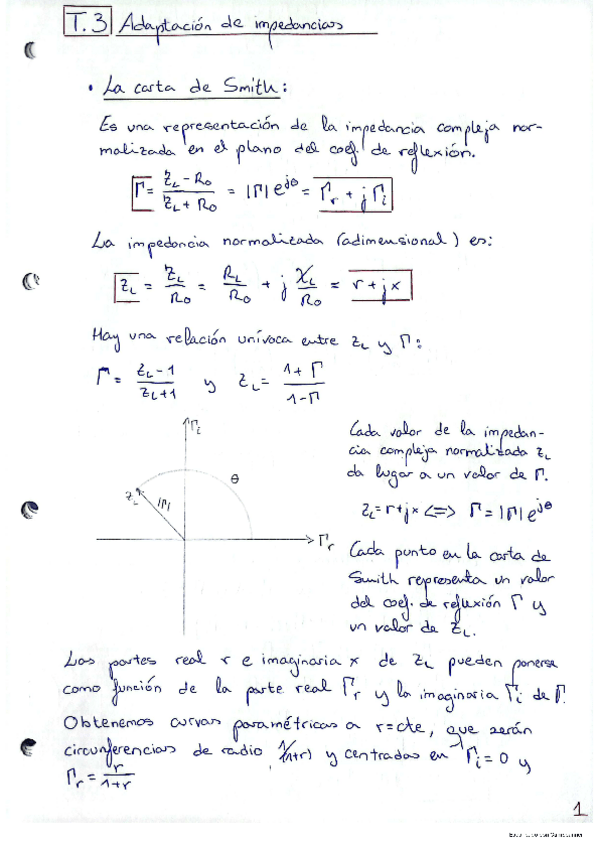 T.3 Adaptación de impedancias
• La carta de Smith:
Es una representación de la impedancia compleja nor-
malizada en el plano del coef. de reflexión.
Γ = (Z_L - R_0)/(Z_L + R_0) = |Γ| e^{jθ} = Γ_r + j Γ_i
La impedancia normalizada (adimensional) es:
z_L = Z_L/R_0 = R_L/R_0 + j X_L/R_0 = r + j x
Hay una relación unívoca entre z_L y Γ:
Γ = (z_L - 1)/(z_L + 1) y z_L = (1 + Γ)/(1 - Γ)
Γ_i
θ
z_L
|Γ|
Γ_r
Cada valor de la impedan-
cia compleja normalizada z_L
da lugar a un valor de Γ.
z_L = r + j x <=> Γ = |Γ| e^{jθ}
Cada punto en la carta de
Smith representa un valor
del coef. de reflexión Γ y
un valor de z_L.
Las partes real r e imaginaria x de z_L pueden ponerse
como función de la parte real Γ_r y la imaginaria Γ_i de Γ.
Obtenemos curvas paramétricas a r=cte, que serán
circunferencias de radio 1/(1+r) y centradas en Γ_i = 0 y
Γ_r = r/(1+r)
1